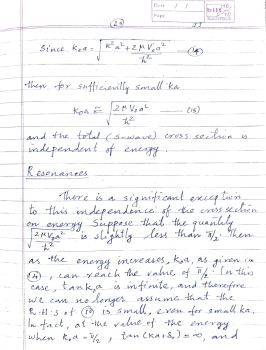 Date / /
Page
(22)
Since k₀a = √(k²a² + 2μV₀a²/ħ²) —(14)
then for sufficiently small ka
k₀a ≃ √(2μV₀a²/ħ²) —(15)
and the total (s-wave) cross section is
independent of energy.
Resonances
There is a significant exception
to this independence of the cross section
on energy. Suppose that the quantity
√(2μV₀a²/ħ²) is slightly less than π/2. Then
as the energy increases, k₀a, as given in
(14), can reach the value of π/2. In this
case, tan k₀a is infinite, and therefore
we can no longer assume that the
R.H.S of is small, even for small ka.
In fact, at the value of the energy
when k₀a = π/2, tan(ka+δ₀) = ∞, and